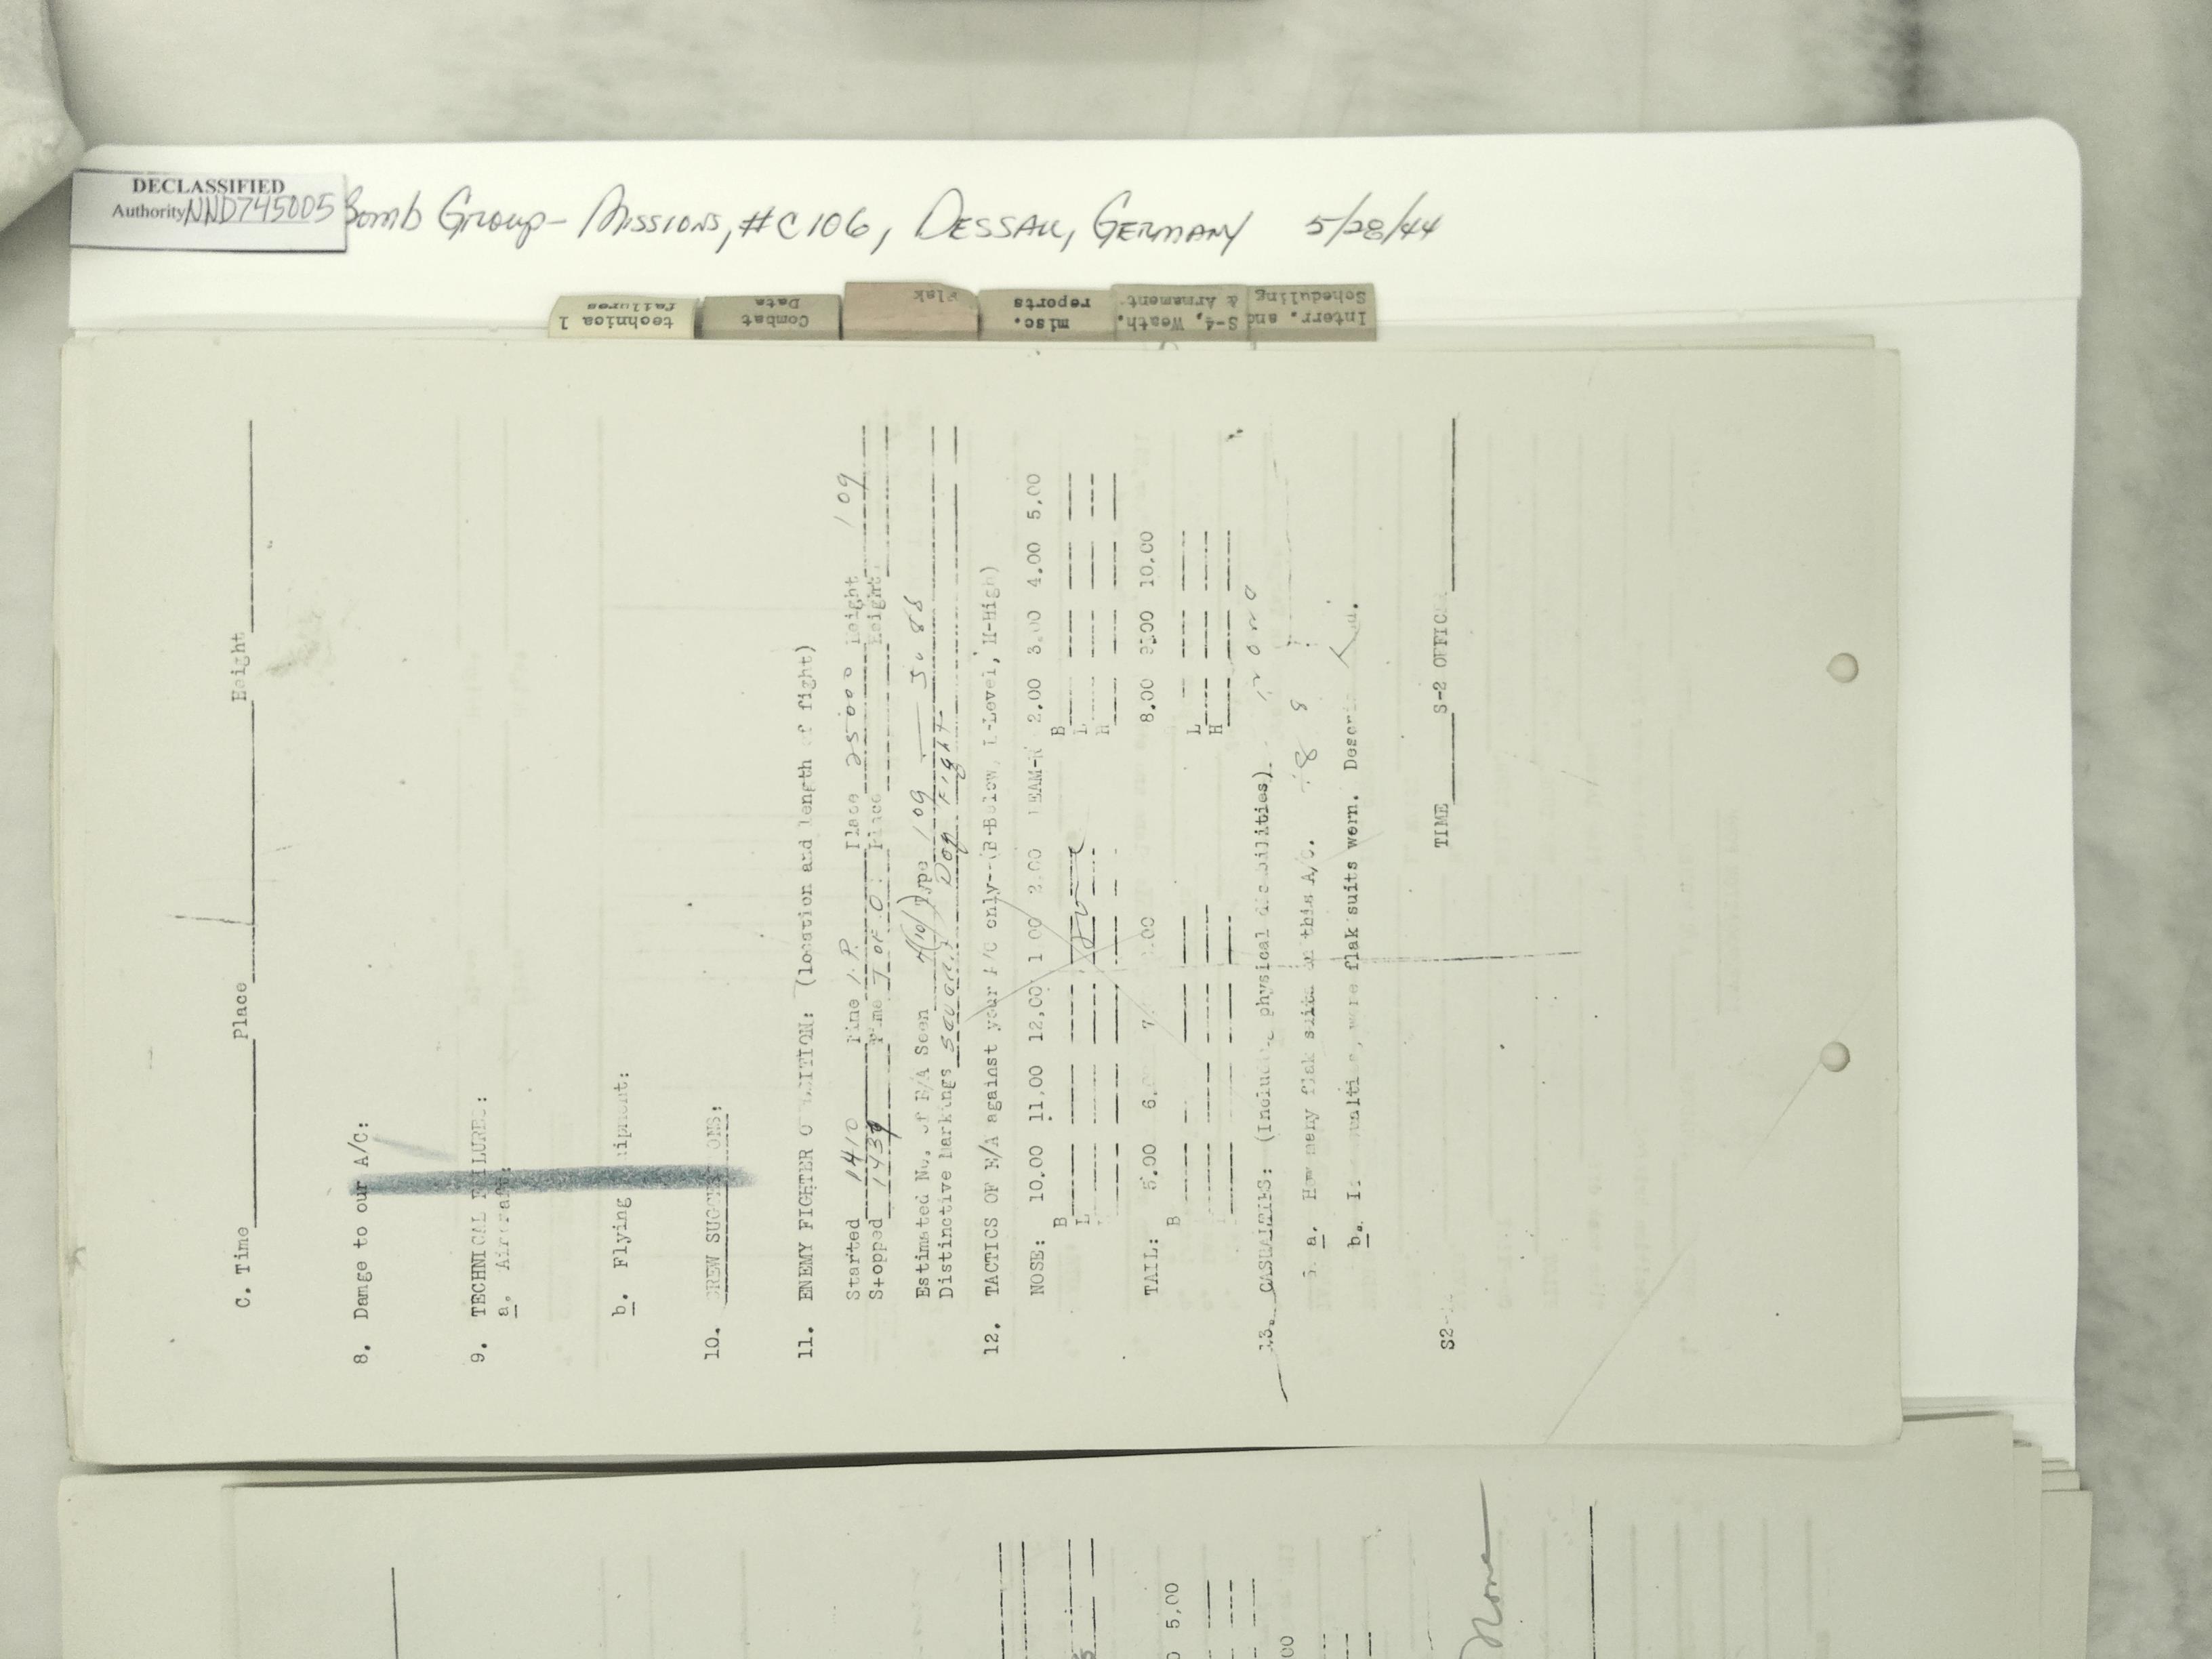 DECLASSIFIED
Authority NND745005
Bomb Group - Missions, #C106, DESSAU, GERMANY 5/28/44
technical failures
Combat Data
Flak
misc. reports
S-4, Weath. & Armament
Interr. and Scheduling
C. Time Place Height
8. Damage to our A/C:
9. TECHNICAL FAILURE:
a. Aircraft:
b. Flying
10. CREW SUGGESTIONS:
11. ENEMY FIGHTER (location and length of fight)
Started 1410 Time I.P. Place 25000 Height 109
Stopped 1437 Time Place Height
Estimated No. of E/A Seen Type 109
Distinctive Markings Dog Fight
12. TACTICS OF E/A against your A/C only--(B-Below, L-Level, H-High)
NOSE: 10.00 11.00 12.00 1.00 2.00 BEAM-R 2.00 3.00 4.00 5.00
B B
L L
H
TAIL: 5.00 8.00 9.00 10.00
B
L
H
13. CASUALTIES: (Include physical disabilities). none
a. How many flak suits on this A/C. 8
b. If casualties, were flak suits worn.
TIME S-2 OFFICER
S2-
5.00
None